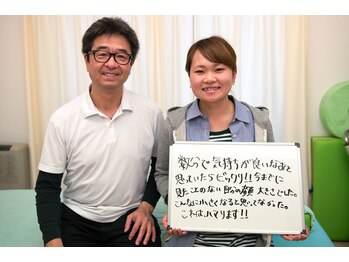 数分で気持ちが良いなあと
思っていたらビックリ!!今までに
見たことのない自分の顔の大きさでした。
こんなに小さくなると思ってなかった。
これはハマります!!